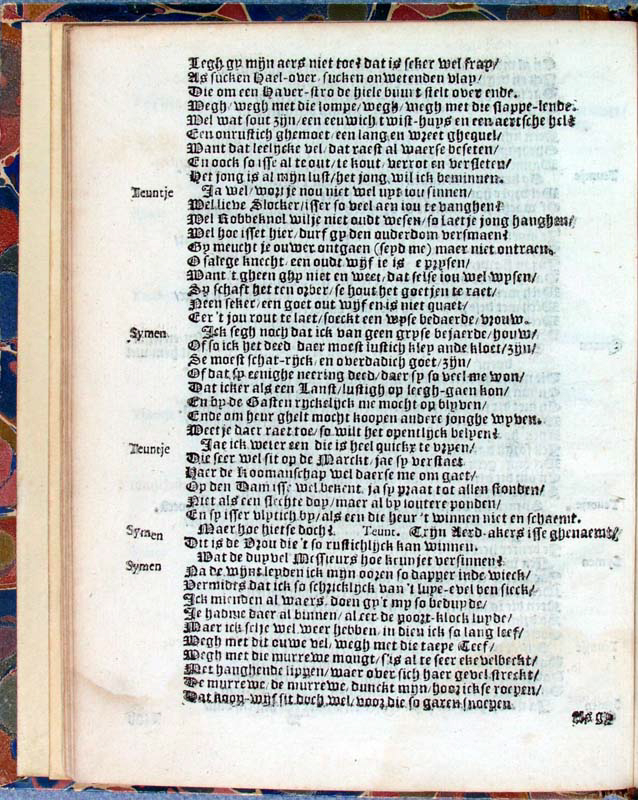 Legh gy mijn aers niet toe? dat is seker wel fray/
As sucken Hael-over, sucken onwetenden vlay/
Die om een Haver-stro de hiele buurt stelt over ende.
Wegh/ wegh met die lompe/ wegh/ wegh met die slappe-lende.
Wel wat sout zijn/ een eeuwich twist-huys en een aertsche hel?
Een onrustich ghemoet/ een lang en wreet ghequel/
Want dat leelycke vel, dat raest al waerse beseten/
En oock so isse al te out/ te kout/ verrot en versleten/
Het jong is al mijn lust/ het jong wil ick beminnen.
Teuntje Ja wel/ wort je nou niet wel uyt iou sinnen/
Wel lieve Slocker/ isser so veel aen iou te vanghen?
Mel Kobbeknol wil je niet oudt wesen/ so laet je jong hanghen/
Wel hoe isset hier/ durf gy den ouderdom versmaen?
Gy meucht je ouwer ontgaen (seyd me) maer niet ontraen.
O salege knecht/ een oudt wijf ie is e prysen/
Want 't gheen ghy niet en weet/ dat selse iou wel wysen/
Sy schaft het ten orber/ se hout het goetjen te raet/
Neen seker/ een goet out wijf en is niet quaet/
Eer 't jou rout te laet/ soeckt een wyse bedaerde/ vrouw.
Symen Ick segh noch dat ick van geen gryse bejaerde/ houw/
Of so ick het deed daer moest lustich kley ande kloet/ zijn/
Se moest schat-rijck en overdadich goet/ zijn/
Of dat sy eenighe neering deed/ daer sy so veel me won/
Dat icker als een Lanst/ lustigh op leegh-gaen kon/
En by de Gasten ryckelyck me mocht op blyven/
Ende om heur ghelt mocht koopen andere jonghe wyven.
Weet je daer raet toe/ so wilt het opentlyck belyen?
Teuntje Jae ick weter een die is heel quickx te vryen/
Die seer wel sit op de Marckt/ jae sy verstaet
Haer de Koomanschap wel daerse me om gaet/
Op den Dam isse wel bekent, ja sy praat tot allen stonden/
Niet als een slechte dop/ maer al by loutere ponden/
En sy isser vlytich by/ als een die heur 't winnen niet en schaemt.
Symen Maer hoe hietse doch? Teunt. Tryn Aerd-akers isse ghenaemt/
Dit is de Vrou die 't so rustichlyck kan winnen.
Symen Wat de duyvel Messieurs hoe keun jet versinnen?
Na de wynt leyden ick mijn ooren so dapper inde wieck/
Vermidts dat ick so schricklyck van 't luye-evel ben sieck/
Ick mienden al waers, doen gy't my so beduyde/
Je hadme daer al binnen/ al eer de poort-klock luyde/
Maer ick selje wel weer hebben, in dien ick so lang leef/
Wegh met dit ouwe vel, wegh met die taepe Teef/
Wegh met die murrewe mongt/ s'is al te seer ekevelbeckt/
Met hanghende lippen/ waer over sich haer gevel streckt/
De murrewe, de murrewe, dunckt mijn/ hoor ickse roepen/
Dat koop-wijf sit doch wel/ voor die so garen snoepen.